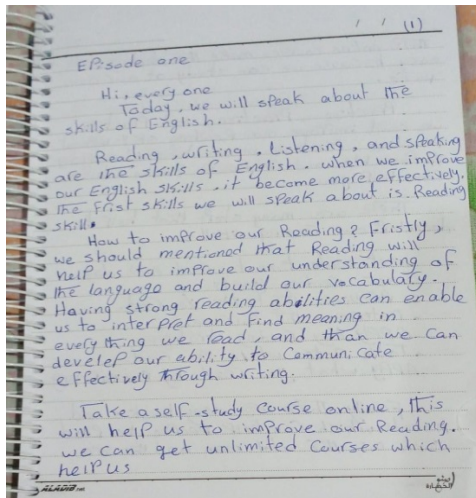 / / (1)
Episode one
Hi, every one
Today, we will speak about the
skills of English.
Reading, writing, Listening, and speaking
are the skills of English. when we improve
our English skills, it become more effectively.
The Frist skills we will speak about is Reading
skill.
How to improve our Reading? Fristly,
we should mentioned that Reading will
help us to improve our understanding of
the language and build our vocabulary.
Having strong reading abilities can enable
us to interpret and find meaning in
every thing we read, and than we can
develep our ability to Communicate
effectively through writing.
Take a self-study course online, this
will help us to improve our Reading.
we can get unlimited Courses which
help us